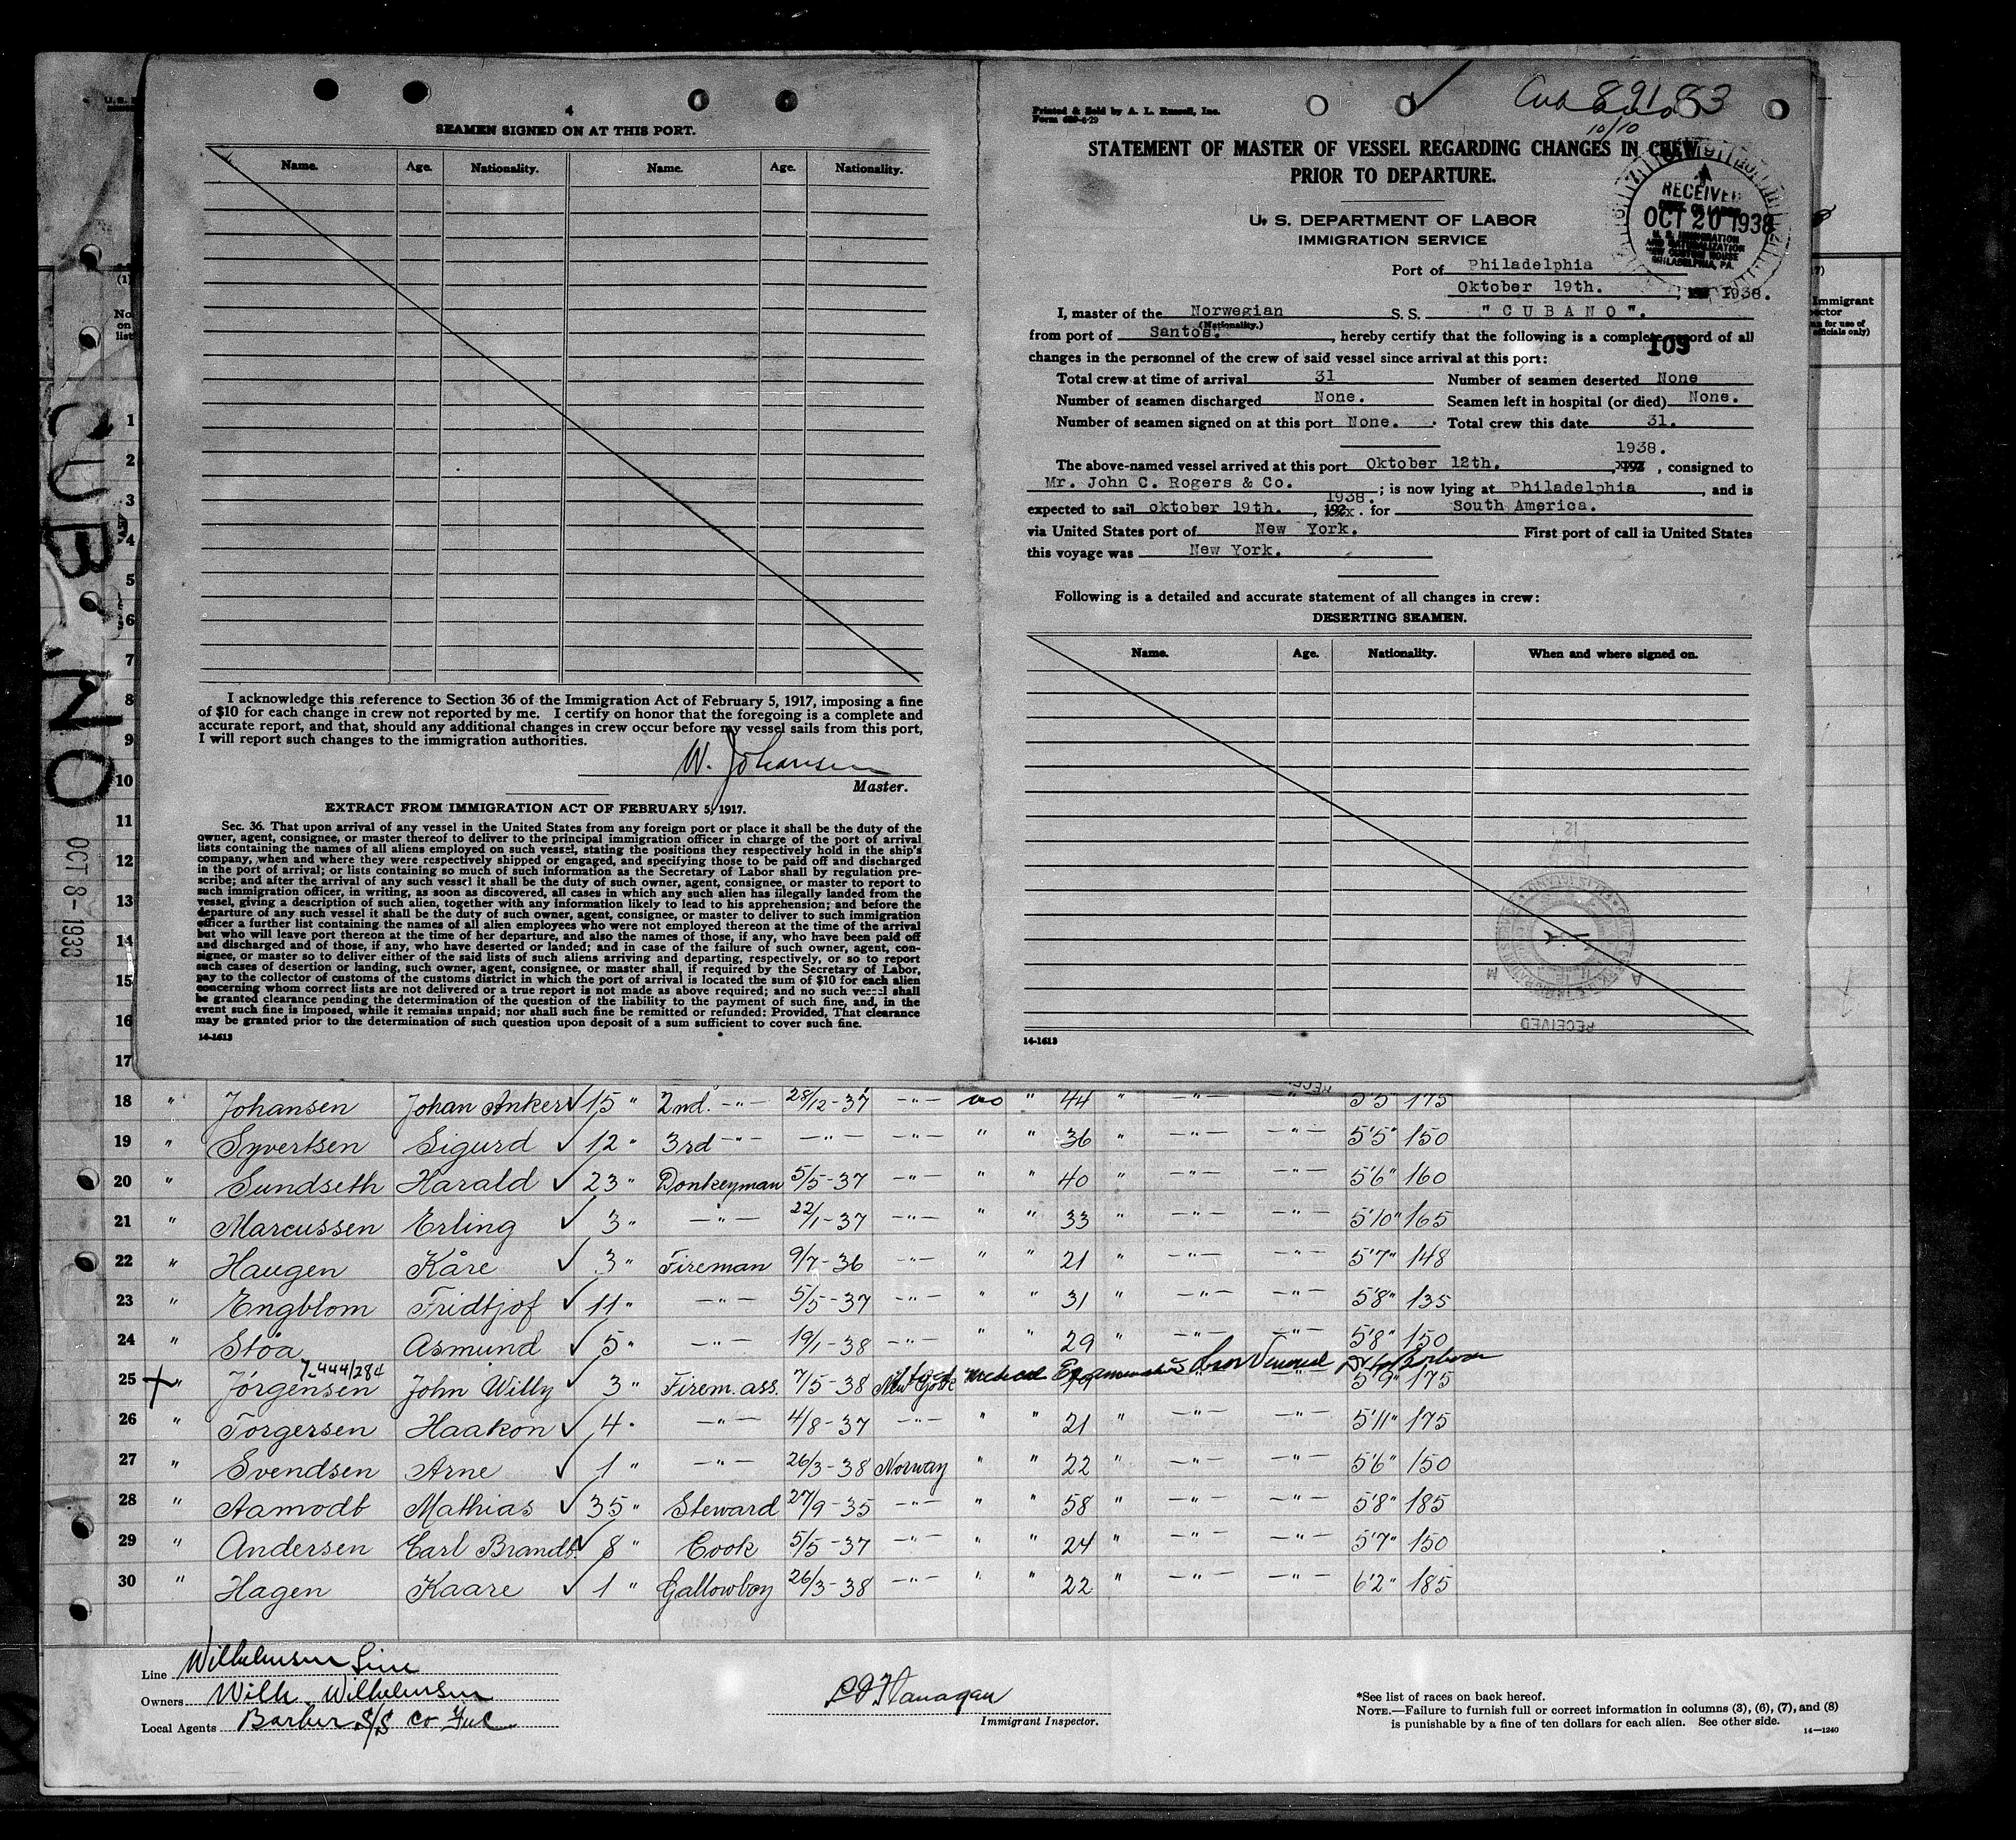 4
SEAMEN SIGNED ON AT THIS PORT.
Name. Age. Nationality. Name. Age. Nationality.
I acknowledge this reference to Section 36 of the Immigration Act of February 5, 1917, imposing a fine
of $10 for each change in crew not reported by me. I certify on honor that the foregoing is a complete and
accurate report, and that, should any additional changes in crew occur before my vessel sails from this port,
I will report such changes to the immigration authorities.
W. Johansen
Master.
EXTRACT FROM IMMIGRATION ACT OF FEBRUARY 5, 1917.
Sec. 36. That upon arrival of any vessel in the United States from any foreign port or place it shall be the duty of the
owner, agent, consignee, or master thereof to deliver to the principal immigration officer in charge of the port of arrival
lists containing the names of all aliens employed on such vessel, stating the positions they respectively hold in the ship's
company, when and where they were respectively shipped or engaged, and specifying those to be paid off and discharged
in the port of arrival; or lists containing so much of such information as the Secretary of Labor shall by regulation pre-
scribe; and after the arrival of any such vessel it shall be the duty of such owner, agent, consignee, or master to report to
such immigration officer, in writing, as soon as discovered, all cases in which any such alien has illegally landed from the
vessel, giving a description of such alien, together with any information likely to lead to his apprehension; and before the
departure of any such vessel it shall be the duty of such owner, agent, consignee, or master to deliver to such immigration
officer a further list containing the names of all alien employees who were not employed thereon at the time of the arrival
but who will leave port thereon at the time of her departure, and also the names of those, if any, who have been paid off
and discharged and of those, if any, who have deserted or landed; and in case of the failure of such owner, agent, con-
signee, or master so to deliver either of the said lists of such aliens arriving and departing, respectively, or so to report
such cases of desertion or landing, such owner, agent, consignee, or master shall, if required by the Secretary of Labor,
pay to the collector of customs of the customs district in which the port of arrival is located the sum of $10 for each alien
concerning whom correct lists are not delivered or a true report is not made as above required; and no such vessel shall
be granted clearance pending the determination of the question of the liability to the payment of such fine, and, in the
event such fine is imposed, while it remains unpaid; nor shall such fine be remitted or refunded: Provided, That clearance
may be granted prior to the determination of such question upon deposit of a sum sufficient to cover such fine.
14-1613
Printed & Sold by A. L. Russell, Inc.
89183
10/10
STATEMENT OF MASTER OF VESSEL REGARDING CHANGES IN CREW
PRIOR TO DEPARTURE.
U. S. DEPARTMENT OF LABOR
IMMIGRATION SERVICE
RECEIVED
OCT 20 1938
PHILADELPHIA, PA.
Port of Philadelphia
Oktober 19th. , 1938.
I, master of the Norwegian S. S. "CUBANO".
(Nationality.)
from port of Santos. , hereby certify that the following is a complete record of all
109
changes in the personnel of the crew of said vessel since arrival at this port:
Total crew at time of arrival 31 Number of seamen deserted None
Number of seamen discharged None. Seamen left in hospital (or died) None.
Number of seamen signed on at this port None. Total crew this date 31.
1938.
The above-named vessel arrived at this port Oktober 12th. , consigned to
Mr. John C. Rogers & Co. ; is now lying at Philadelphia , and is
1938.
expected to sail oktober 19th. , for South America.
via United States port of New York. First port of call in United States
this voyage was New York.
Following is a detailed and accurate statement of all changes in crew:
DESERTING SEAMEN.
Name. Age. Nationality. When and where signed on.
RECEIVED
14-1613
CUBANO
OCT 8-1938
(1)
No. on list
Immigrant
1
2
3
4
5
6
7
8
9
10
11
12
13
14
15
16
17
18 " Johansen Johan Anker ✓ 15 " 2nd. -"- 28/12-37 -"- no " 44 " -"- -"- 5'5 175
19 " Syvertsen Sigurd ✓ 12 " 3rd -"- -"- -"- " " 36 " -"- -"- 5'5" 150
20 " Sundseth Harald ✓ 23 " Donkeyman 5/5-37 -"- " " 40 " -"- -"- 5'6" 160
21 " Marcussen Erling ✓ 3 " -"- 22/1-37 -"- " " 33 " -"- -"- 5'10" 165
22 " Haugen Kåre ✓ 3 " Fireman 9/7-36 -"- " " 21 " -"- -"- 5'7" 148
23 " Engblom Fridtjof ✓ 11 " -"- 5/5-37 -"- " " 31 " -"- -"- 5'8" 135
24 " Stöa Asmund ✓ 5 " -"- 19/1-38 -"- " " 29 " -"- -"- 5'8" 150
25 " Jörgensen John Willy ✓ 3 " Firem. ass. 7/5-38 New York 5'9" 175
26 " Torgersen Haakon ✓ 4 " -"- 4/8-37 -"- " " 21 " -"- -"- 5'11" 175
27 " Svendsen Arne ✓ 1 " -"- 26/3-38 Norway " " 22 " -"- -"- 5'6" 150
28 " Aamodt Mathias ✓ 35 " Steward 27/9-35 -"- " " 58 " -"- -"- 5'8" 185
29 " Andersen Carl Brandt ✓ 8 " Cook 5/5-37 -"- " " 24 " -"- -"- 5'7" 150
30 " Hagen Kaare ✓ 1 " Gallowboy 26/3-38 -"- " " 22 " -"- -"- 6'2" 185
Line Wilhelmsen Line
Owners Wilh. Wilhelmsen
Local Agents Barber S/S Co Inc
Flanagan
Immigrant Inspector.
*See list of races on back hereof.
NOTE.—Failure to furnish full or correct information in columns (3), (6), (7), and (8)
is punishable by a fine of ten dollars for each alien. See other side.
14—1240